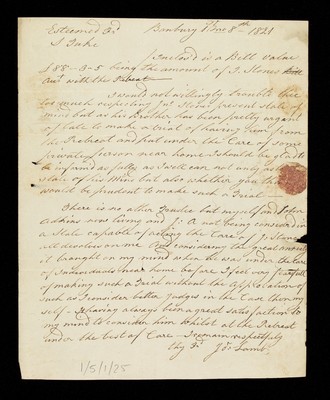 Esteemed Frd
Banbury 1st mo 8th 1821
S. Tuke
Enclos'd is a Bill value
£88-0-5 being the amount of J. Stones
Acct with the Retreat
I would not willingly trouble thee
too much respecting Jno Stones present state of
mind but as his Brother has been pretty urgent
of late to make a trial of having him from
the Retreat and put under the Care of some
private person near home I should be glad to
be informed as fully as I well can, not only as to the
state of his Mind but also whether you think it
would be prudent to make such a Trial
There is no other Trustee but myself and John
Adkins now living and J: A not being consider'd in
a State capable of acting the Care of J. Stone
all devolves on me And considering the great anxiety
it brought on my mind when he was under the Care
of Individuals near home before I feel very fearfull
of making such a Trial without the Approbation of
such as I consider better Judges in the Case than my
self - it having always been a great satisfaction to
my mind to consider him whilst at the Retreat
under the best of Care - I remain respectfully
thy Fd Js. Lamb
1/5/1/25